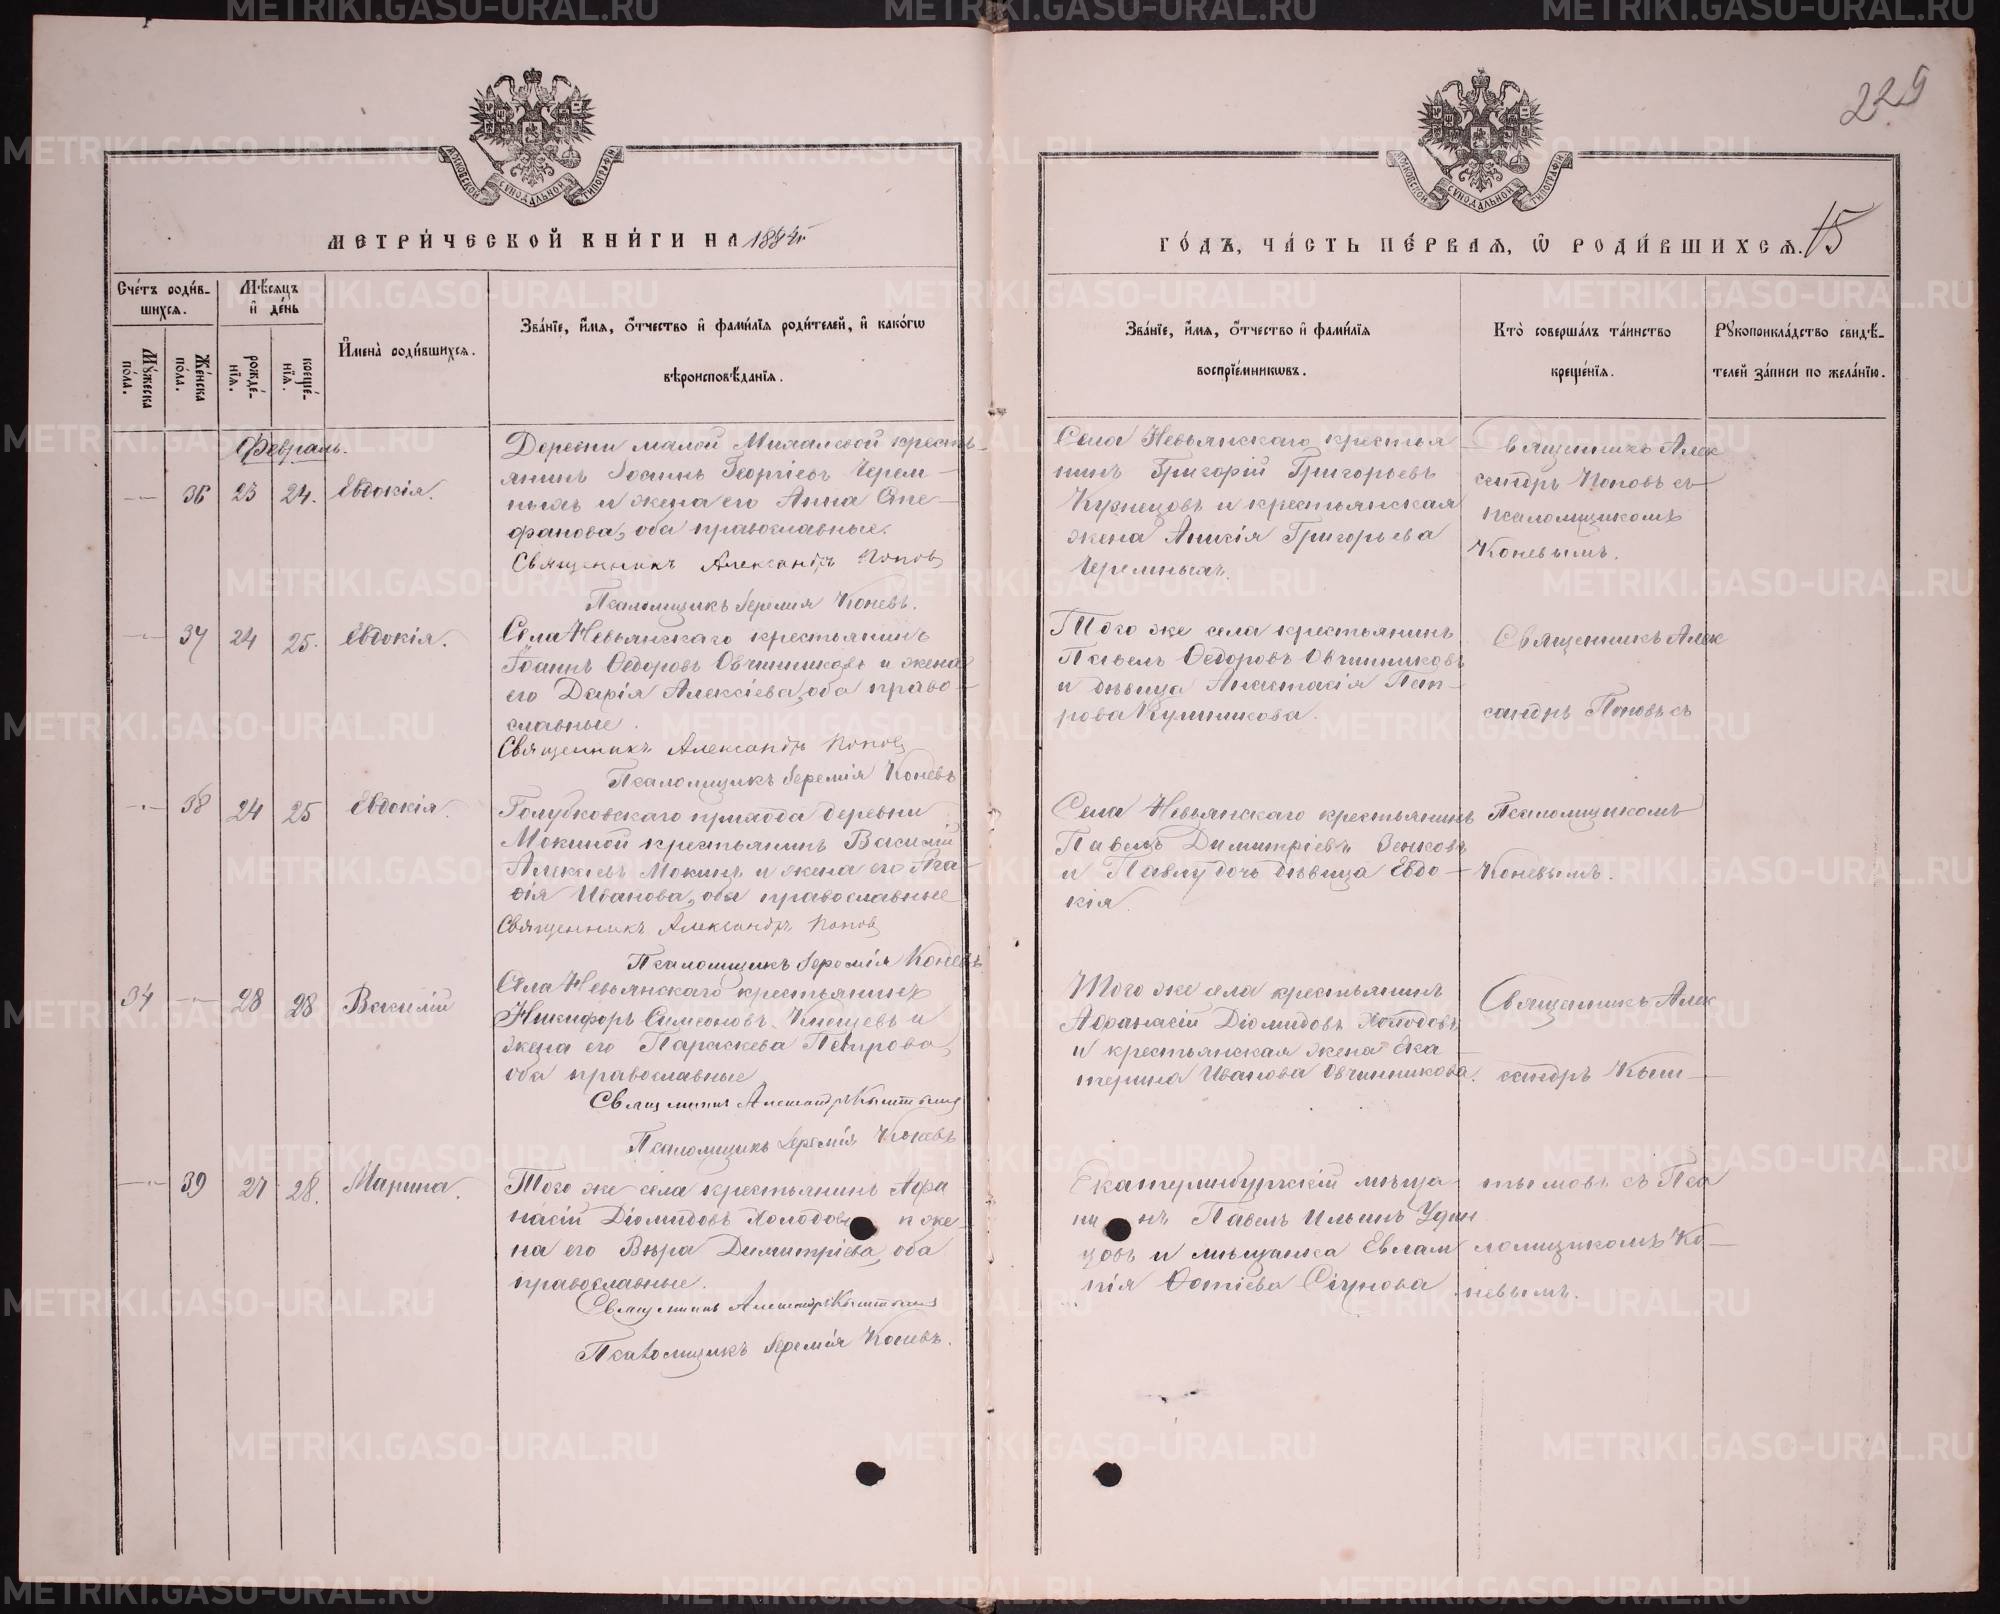 229
МОСКОВСКОЙ СѴНОДАЛЬНОЙ ТИПОГРАФІИ
МОСКОВСКОЙ СѴНОДАЛЬНОЙ ТИПОГРАФІИ
МЕТРИ́ЧЕСКОЙ КНИ́ГИ НА 1884
ГО́ДЪ, ЧА́СТЬ ПЕ́РВАЯ, Ѡ РОДИ́ВШИХСЯ. 15
Сче́тъ роди́в-
шихся.
Мѣ́сяцъ
и҆ де́нь
Мꙋ́жеска
по́ла.
Же́нска
по́ла.
рожде́-
нїя.
креще́-
нїя.
И҆мена̀ роди́вшихся.
Зва́нїе, и҆́мя, ѻ҆́тчество и҆ фами́лїя роди́телей, и҆ како́гѡ
вѣроисповѣ́данїя.
Зва́нїе, и҆́мя, ѻ҆́тчество и҆ фами́лїя
воспрїе́мникѡвъ.
Кто̀ соверша́лъ та́инство
креще́нїя.
Рꙋкоприкла́дство свидѣ́-
телей за́писи по жела́нїю.
Февраль.
36 23 24. Евдокія.
Деревни малой Михалевой кресть-
янинъ Іоаннъ Георгіевъ Черем-
ныхъ и жена его Анна Сте-
фанова, оба православные.
Священникъ Александръ Попов
Псаломщикъ Іеремія Коневъ.
Села Невьянскаго крестья-
нинъ Григорій Григорьевъ
Кузнецовъ и крестьянская
жена Анисія Григорьева
Черемныхъ.
Священникъ Алек
сандръ Поповъ съ
псаломщикомъ
Коневымъ.
37 24 25. Евдокія.
Села Невьянскаго крестьянинъ
Іоаннъ Ѳедоровъ Овчинниковъ и жена
его Дарія Алексіева, оба право-
славные.
Священникъ Александръ Попов
Псаломщикъ Іеремія Коневъ
Того же села крестьянинъ
Павелъ Ѳедоровъ Овчинниковъ
и дѣвица Анастасія Пет-
рова Куликова.
Священникъ Алек
сандръ Поповъ съ
38 24 25 Евдокія.
Голубковскаго прихода деревни
Мокиной крестьянинъ Василій
Алексіевъ Мокинъ и жена его Ага-
ѳія Иванова, оба православные
Священникъ Александръ Попов
Псаломщикъ Іеремія Коневъ
Села Невьянскаго крестьянинъ
Павелъ Димитріевъ Зенковъ
и Павлу дочь дѣвица Евдо-
кія.
Псаломщикомъ
Коневымъ.
34 28 28 Василій
Села Невьянскаго крестьянинъ
Никифоръ Симеоновъ Клещевъ и
жена его Параскева Петрова,
оба православные
Священникъ Александръ Кыштымов
Псаломщикъ Іеремія Коневъ
Того же села крестьянинъ
Афанасій Діомидовъ Холодовъ
и крестьянская жена Ека
терина Иванова Овчинникова.
Священникъ Алек
сандръ Кыш-
39 27 28. Марина.
Того же села крестьянинъ Афа
насій Діомидовъ Холодов и же
на его Вѣра Димитріева, оба
православные.
Священникъ Александръ Кыштымов
Псаломщикъ Іеремія Коневъ.
Екатеринбургскій мѣща
ни нъ Павелъ Ильинъ Удин
цовъ и мѣщанка Евлам
пія Фотіева
тымовъ съ Пса
ломщикомъ Ко-
невымъ.
METRIKI.GASO-URAL.RU